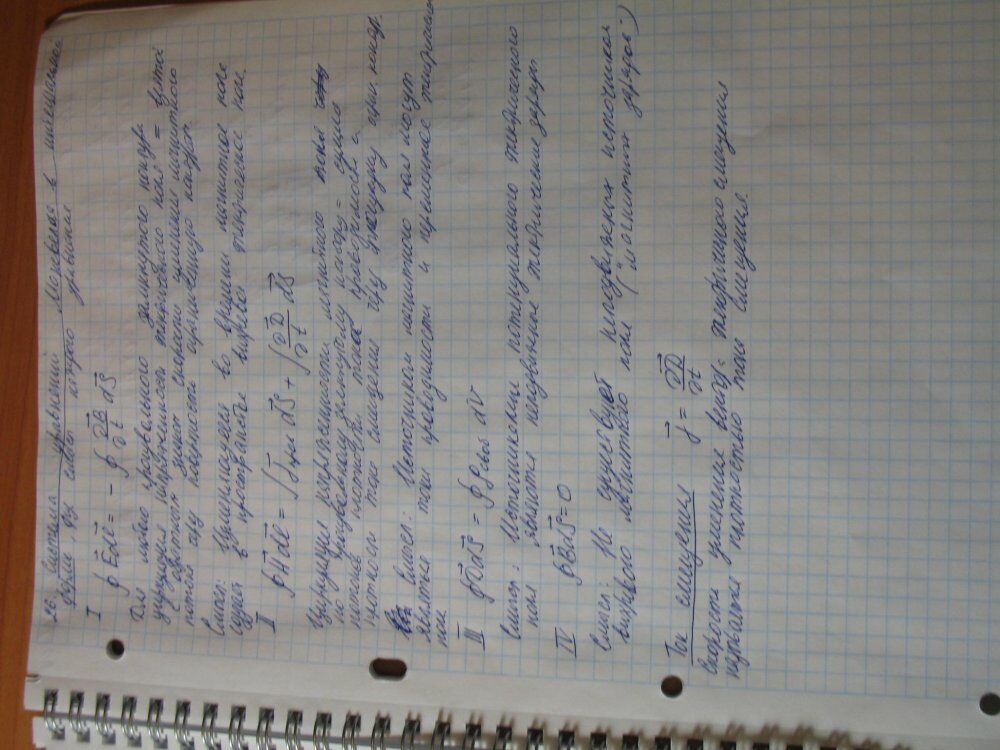 26. Система уравнений Максвелла в интегральной
форме, физ смысл каждого уравнения
I ∮E⃗dl⃗ = - ∮ ∂B⃗/∂t dS⃗
Для любого замкнутого контура
циркуляция напряженности электрического поля = взятой
с обратным знаком скорости изменения магнитного
потока через поверхность ограниченную контуром
Смысл: Изменяющееся во времени магнитное поле
создает в пространстве вихревое электрическое поле
II ∮H⃗dl⃗ = ∫j⃗ пров dS⃗ + ∫ ∂D⃗/∂t dS⃗
Циркуляция напряженности магнитного поля
по произвольному замкнутому контуру = сумме
потоков плотности тока проводимости и
плотности тока смещения через
Смысл: Источником магнитного поля могут
являться токи проводимости и переменное электрическое
поле
III ∮D⃗dS⃗ = ∮ρ своб dV
Смысл: Источником потенциального электрического
поля являются неподвижные электрические заряды
IV ∮B⃗dS⃗=0
Смысл: Не существует неподвижных источников
вихревого магнитного поля ("магнитных зарядов")
Ток смещения j⃗ = ∂D⃗/∂t
Скорость изменения вектора электрического смещения
называется плотностью тока смещения.